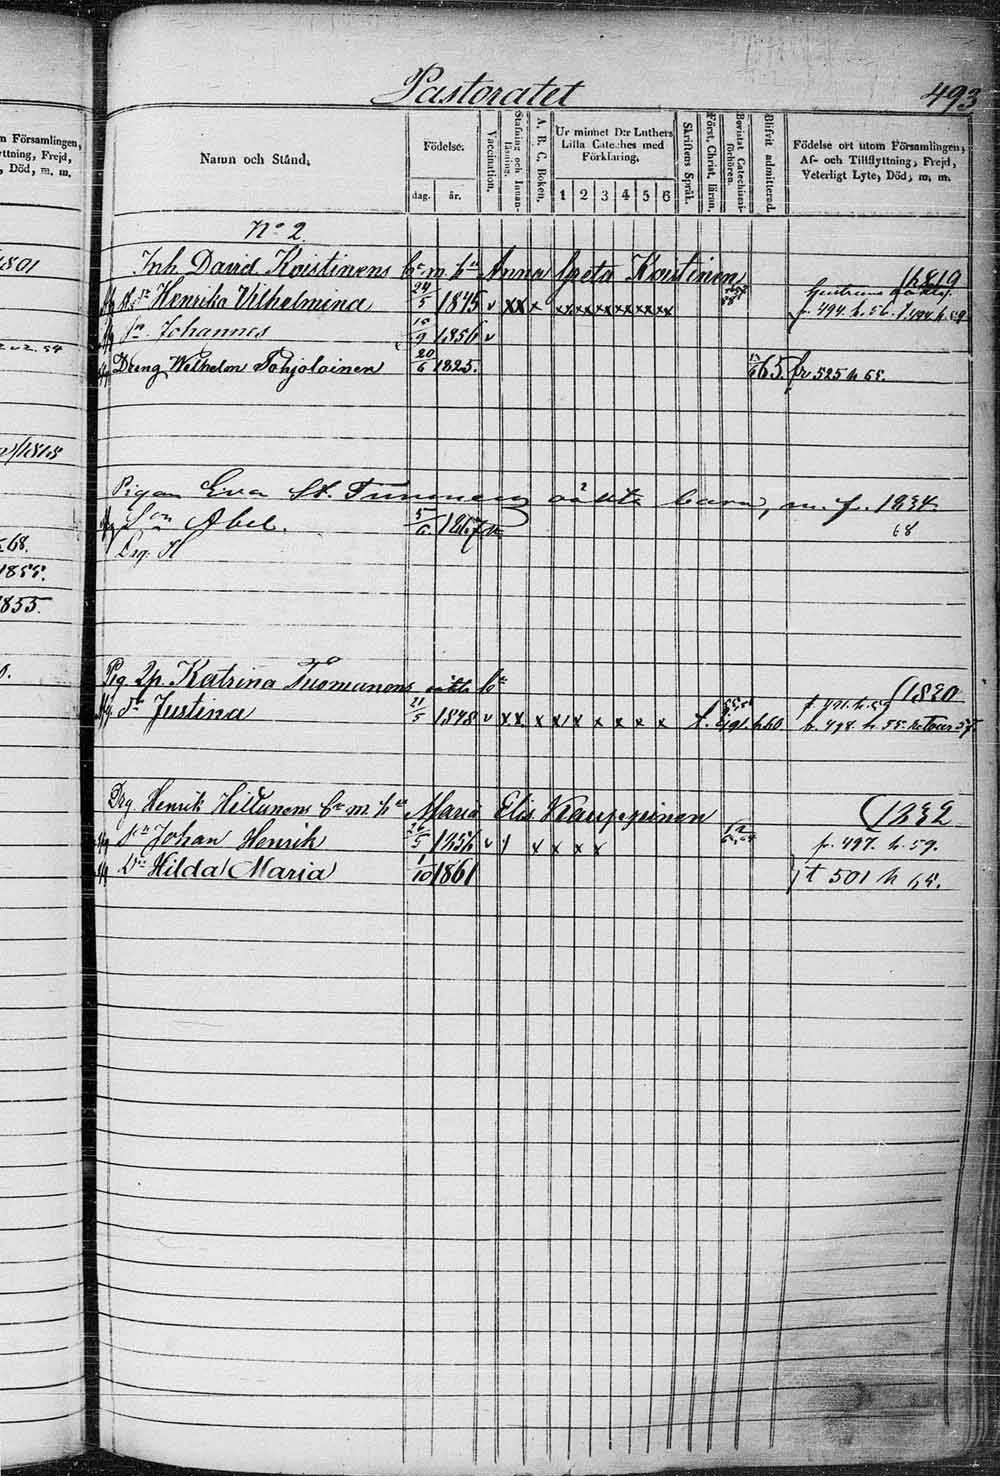 Pastoratet 493
n Församlingen,
yttning, Frejd,
, Död, m. m.
Namn och Stånd.
Födelse.
dag. år.
Vaccination.
Stafning och Innan-
läsning.
A. B. C. Boken.
Ur minnet D:r Luthers
Lilla Cateches med
Förklaring.
1 2 3 4 5 6
Skriftens Språk.
Först. Christ. läran.
Bevistat Catechismi-
förhören.
Blifvit admitterad.
Födelse ort utom Församlingen,
Af- och Tillflyttning, Frejd,
Veterligt Lyte, Död, m. m.
No 2.
1801
Inh. David Koistinens bn m. hu Anna Greta Koistinen (1819
Henrika Vilhelmina 24/5 1845 v x x x x x x x x x x x
p. 494. h. 56.
Sn Johannes 10/9 1856 v
Dreng Wilhelm Pohjolainen 20/6 1825. 65. fr 525 h 65.
1818
Pigan Eva St. Tummens oäkta barn, m. f. 1834
Sn Abel. 5/6 1867 68
68.
Drg. H
1855.
1855.
Pig. Katrina Tuomanens oäkta bn (1830
dr Justina 21/5 1848 v x x x x x x x x x t. 491. h 60 p. 498. h. 55.
Drg Henrik Hiltunens bn m. hu Maria Elis Kauppinen (1832
Sn Johan Henrik 24/5 1856 v x x x x p. 497. h. 59.
Dr Hilda Maria 1/10 1861 t 501 h 65.